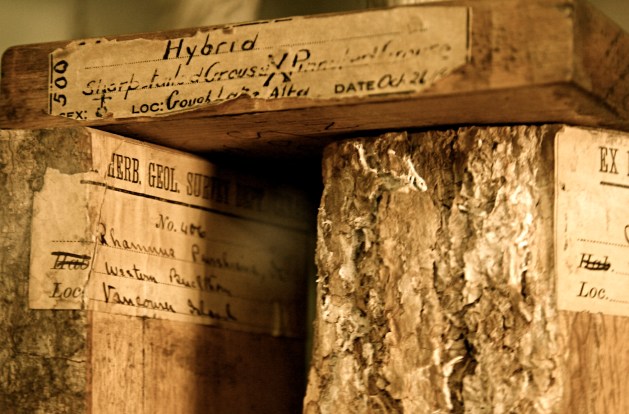 Hybrid
500
Sharp-tailed Grouse X Pinnated Grouse
SEX: LOC: Gough Lake, Alta DATE Oct 26
HERB. GEOL. SURVEY
No. 406
Rhamnus Purshiana,
Hab
Western Buckthorn
Loc. Vancouver Island
EX
Hab.
Loc.